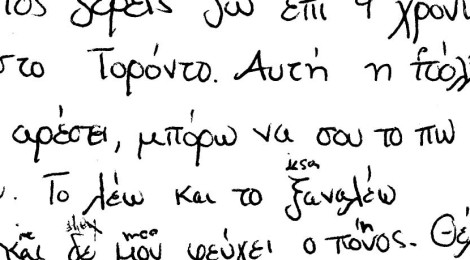 ζω επι 9 χρονι
στο Τορόντο. Αυτή η πόλ
αρέσει, μπόρω να σου το πω
. Το λέω και το ξαναλέω
και δέ μου φεύχει ο πόνος. Θέ